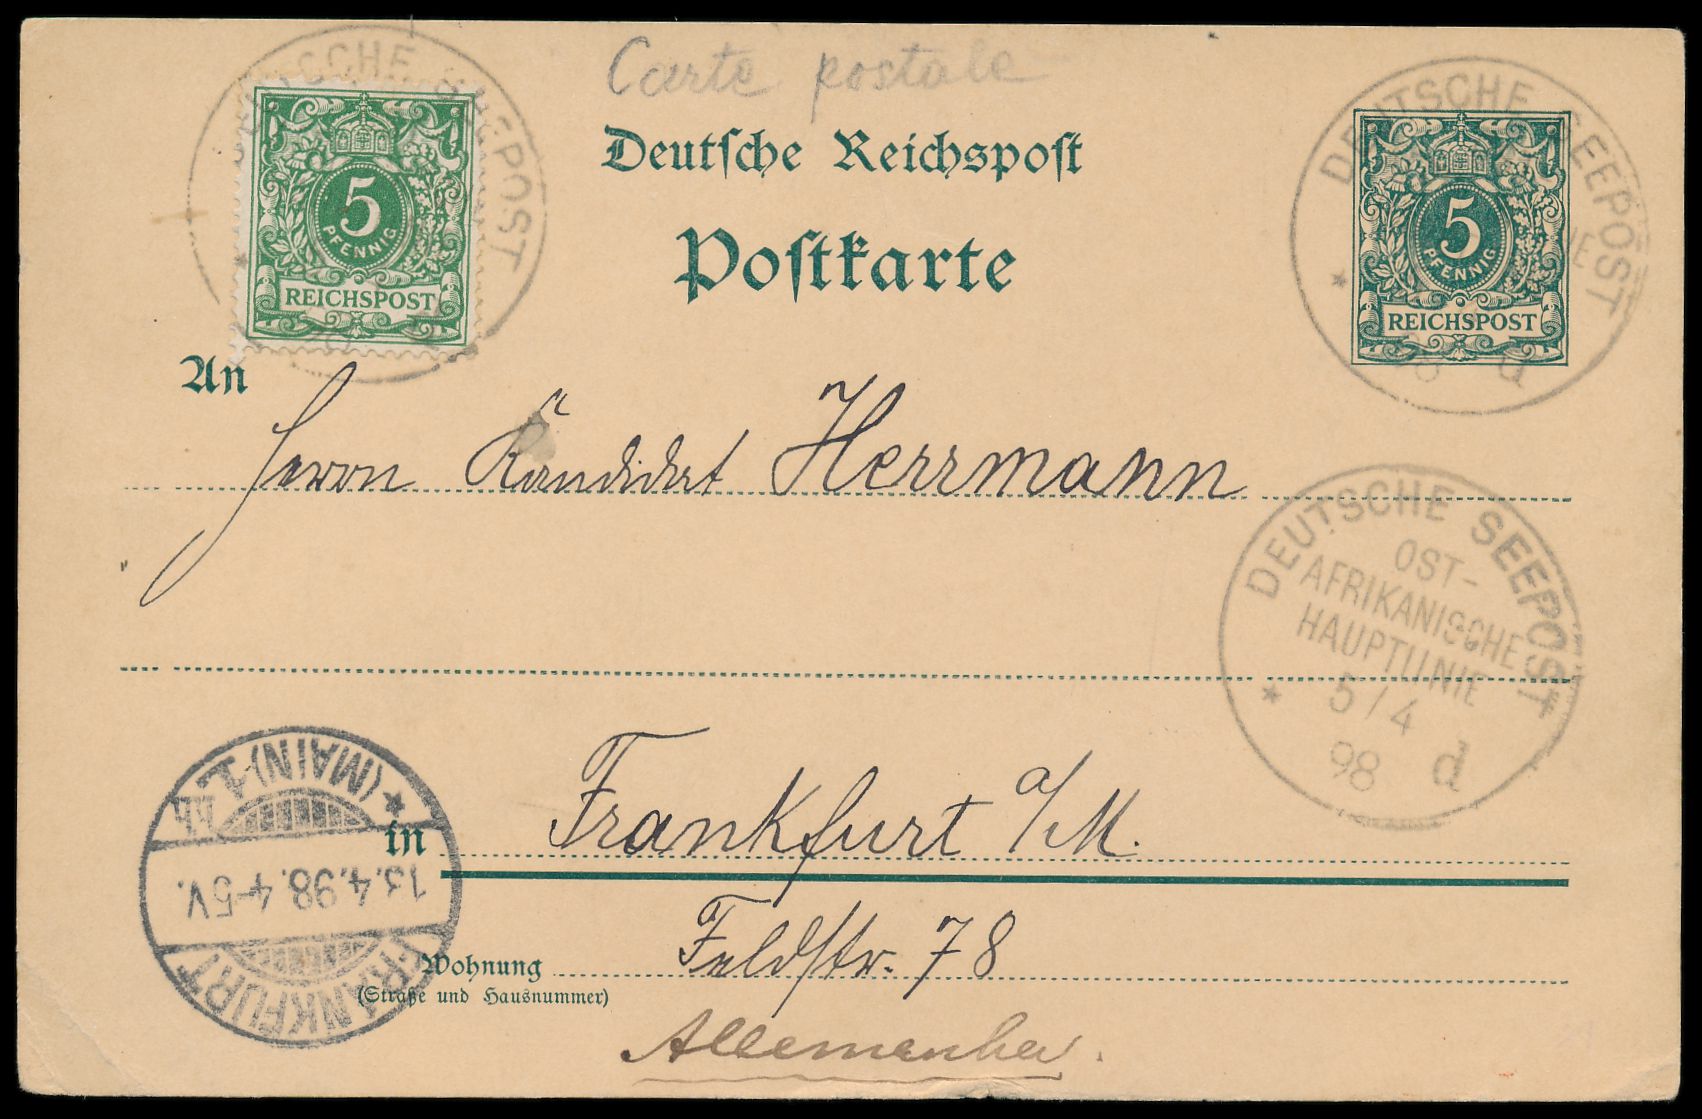 Carte postale
DEUTSCHE SEEPOST
5
PFENNIG
REICHSPOST
Deutsche Reichspost
Postkarte
DEUTSCHE SEEPOST
98 d
5
PFENNIG
REICHSPOST
An
Herrn Kandidat Herrmann
DEUTSCHE SEEPOST
OST-
AFRIKANISCHE
HAUPTLINIE
5/4
98 d
in Frankfurt a/M.
FRANKFURT
13.4.98.4-5V.
(MAIN) 1.
Wohnung Feldstr. 78
(Straße und Hausnummer)